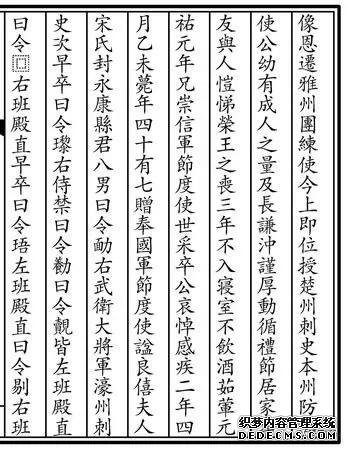 像恩遷雅州團練使今上即位授楚州刺史本州防
使公幼有成人之量及長謙沖謹厚動循禮節居家
友與人愷悌榮王之喪三年不入寢室不飲酒茹葷元
祐元年兄崇信軍節度使世采卒公哀悼感疾二年四
月乙未薨年四十有七贈奉國軍節度使諡良僖夫人
宋氏封永康縣君八男曰令勔右武衛大將軍濠州刺
史次早卒曰令瓈右侍禁曰令勸曰令覿皆左班殿直
曰令⬚右班殿直早卒曰令珸左班殿直曰令剔右班
织梦内容管理系统
DEDECMS.COM